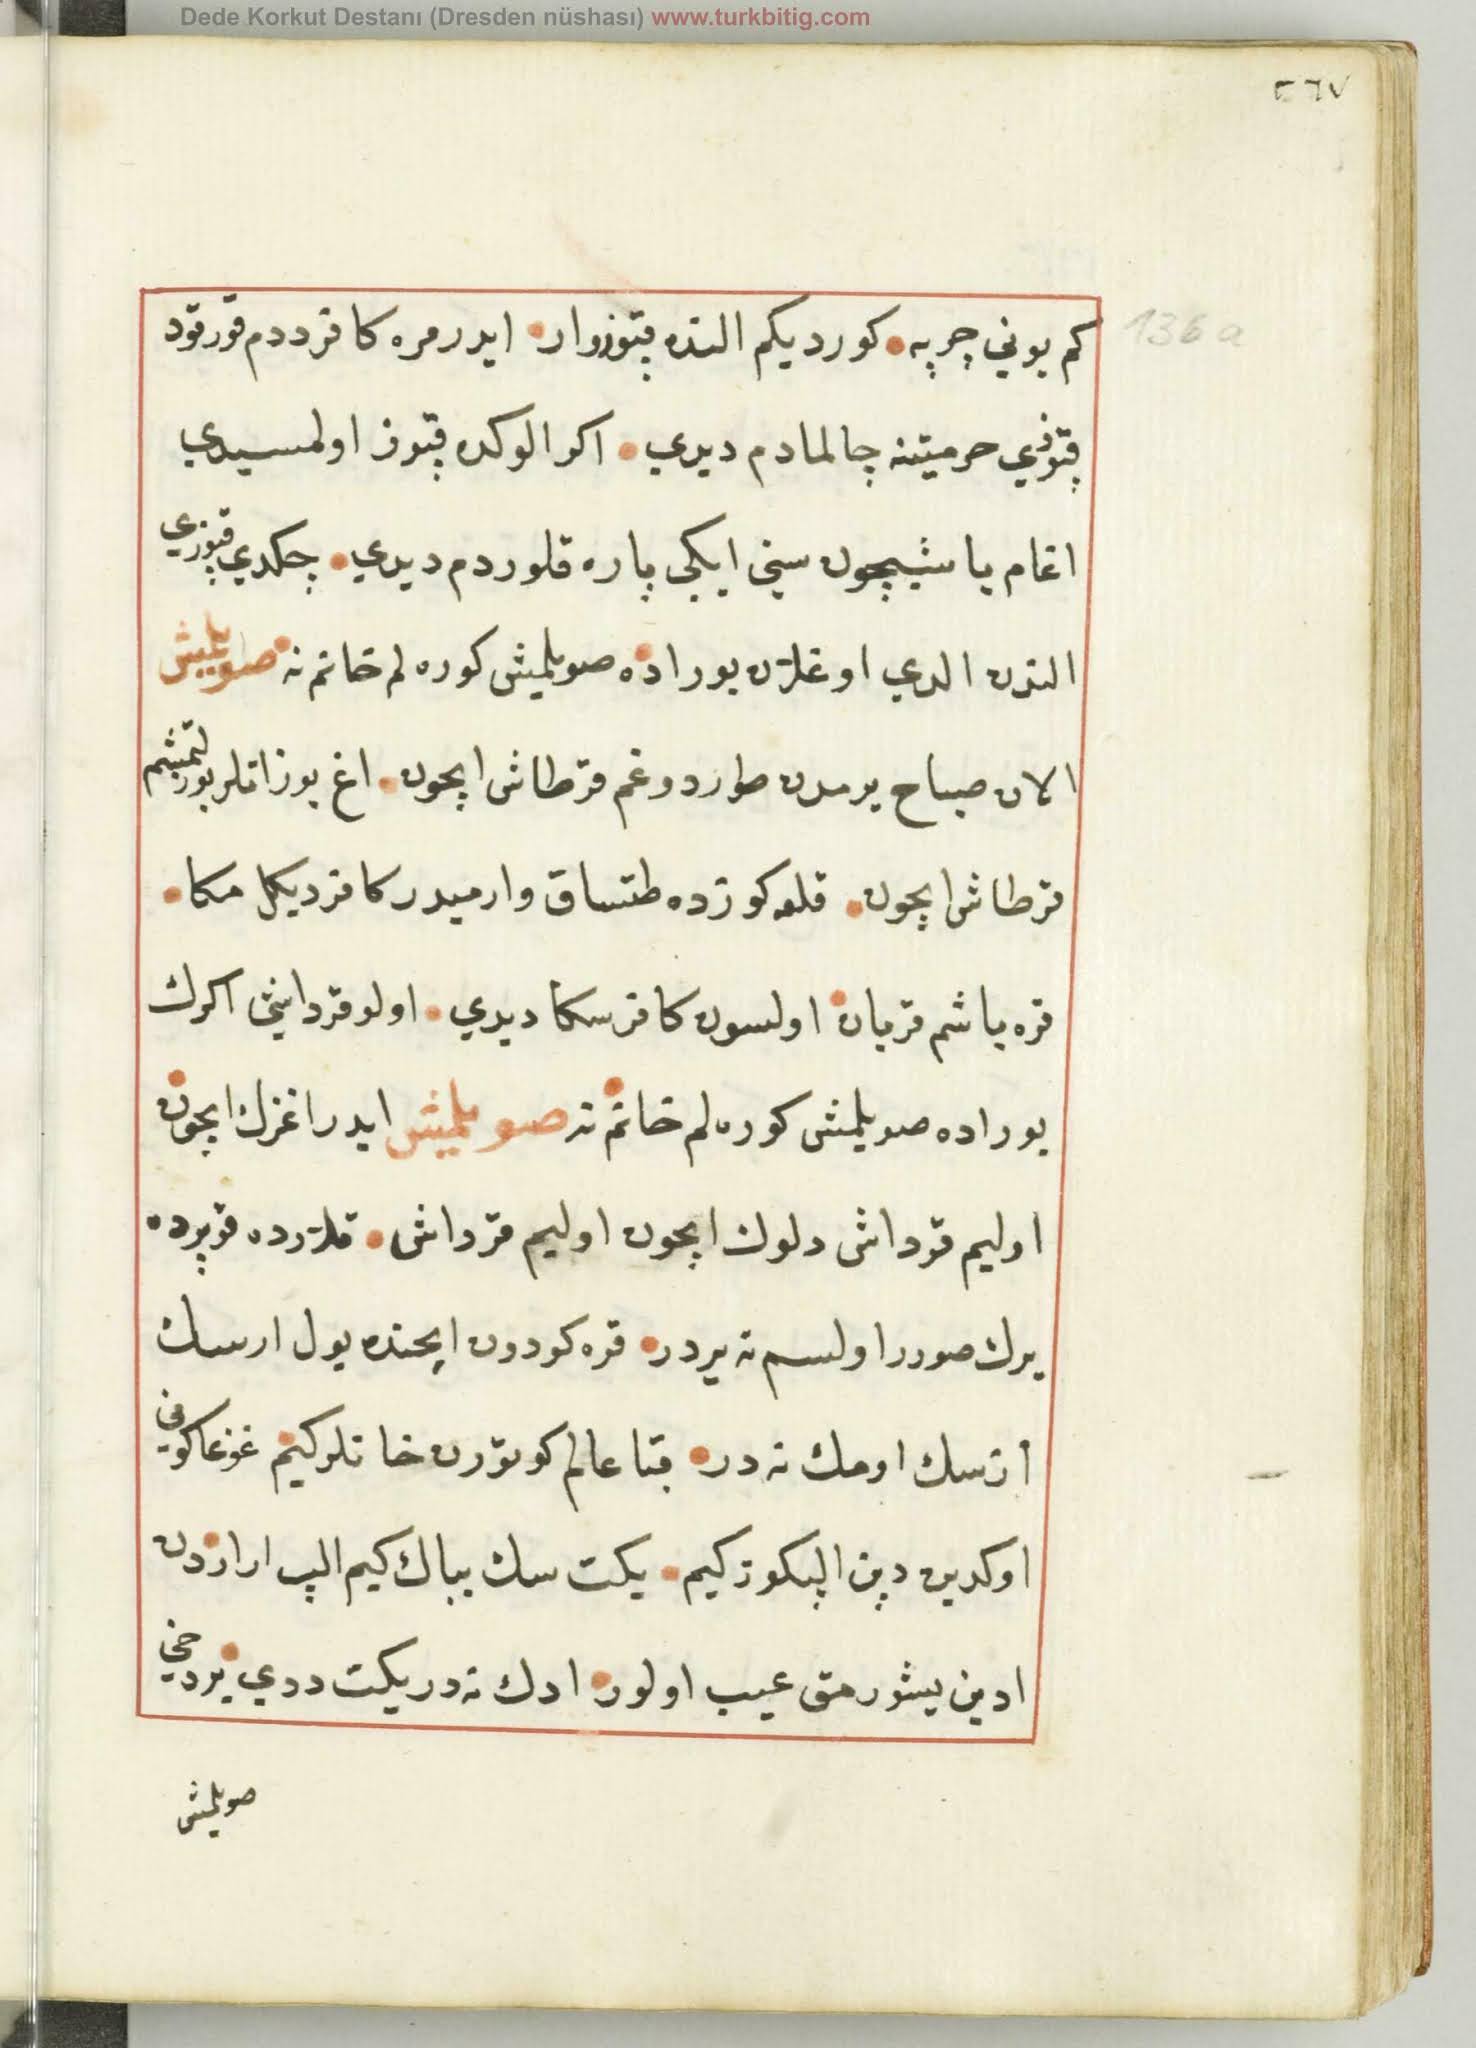 Dede Korkut Destanı (Dresden nüshası) www.turkbitig.com
٢٦٧
136a
كم بوني چرپه كوردیكم النده قپوز وار ایدر مره كافر ددم قورقود
قپوزي حرمیتنه چالمادم دیدي اكر الوكده قپوز اولمسیدي
اغام باشیچون سني ایكی پاره قلوردم دیدي چكدي قپوزي
الندن الدي اوغلان بوراده صویلمیش كوره لم خانم نه صویلمیش
الان صباح یرمدن طوردوغم قرطاش ایچون اغ بوز اتلر یورتمیشم
قرطاش ایچون قلعه كوزده طتساق وارمیدر كافر دیكل مكا
قره باشم قربان اولسون كافر سكا دیدي اولو قرداشي اكرك
بوراده صویلمش كوره لم خانم نه صویلمیش ایدر اغزك ایچون
اولیم قرداش دلوك ایچون اولیم قرداش قلارده قوپرده
یرك صورر اولسم نه یردر قره كودون ایچنده یول ارسك
ازسك اومك نه در قبا عالم كوتورن خانلر كیم غوغا كوني
اوكدین دپن الپكوز كیم یكت سك بباك كیم الپ اراردن
ادین یشورمق عیب اولور ادك نه در یكت ددي یر دخي
صویلمش